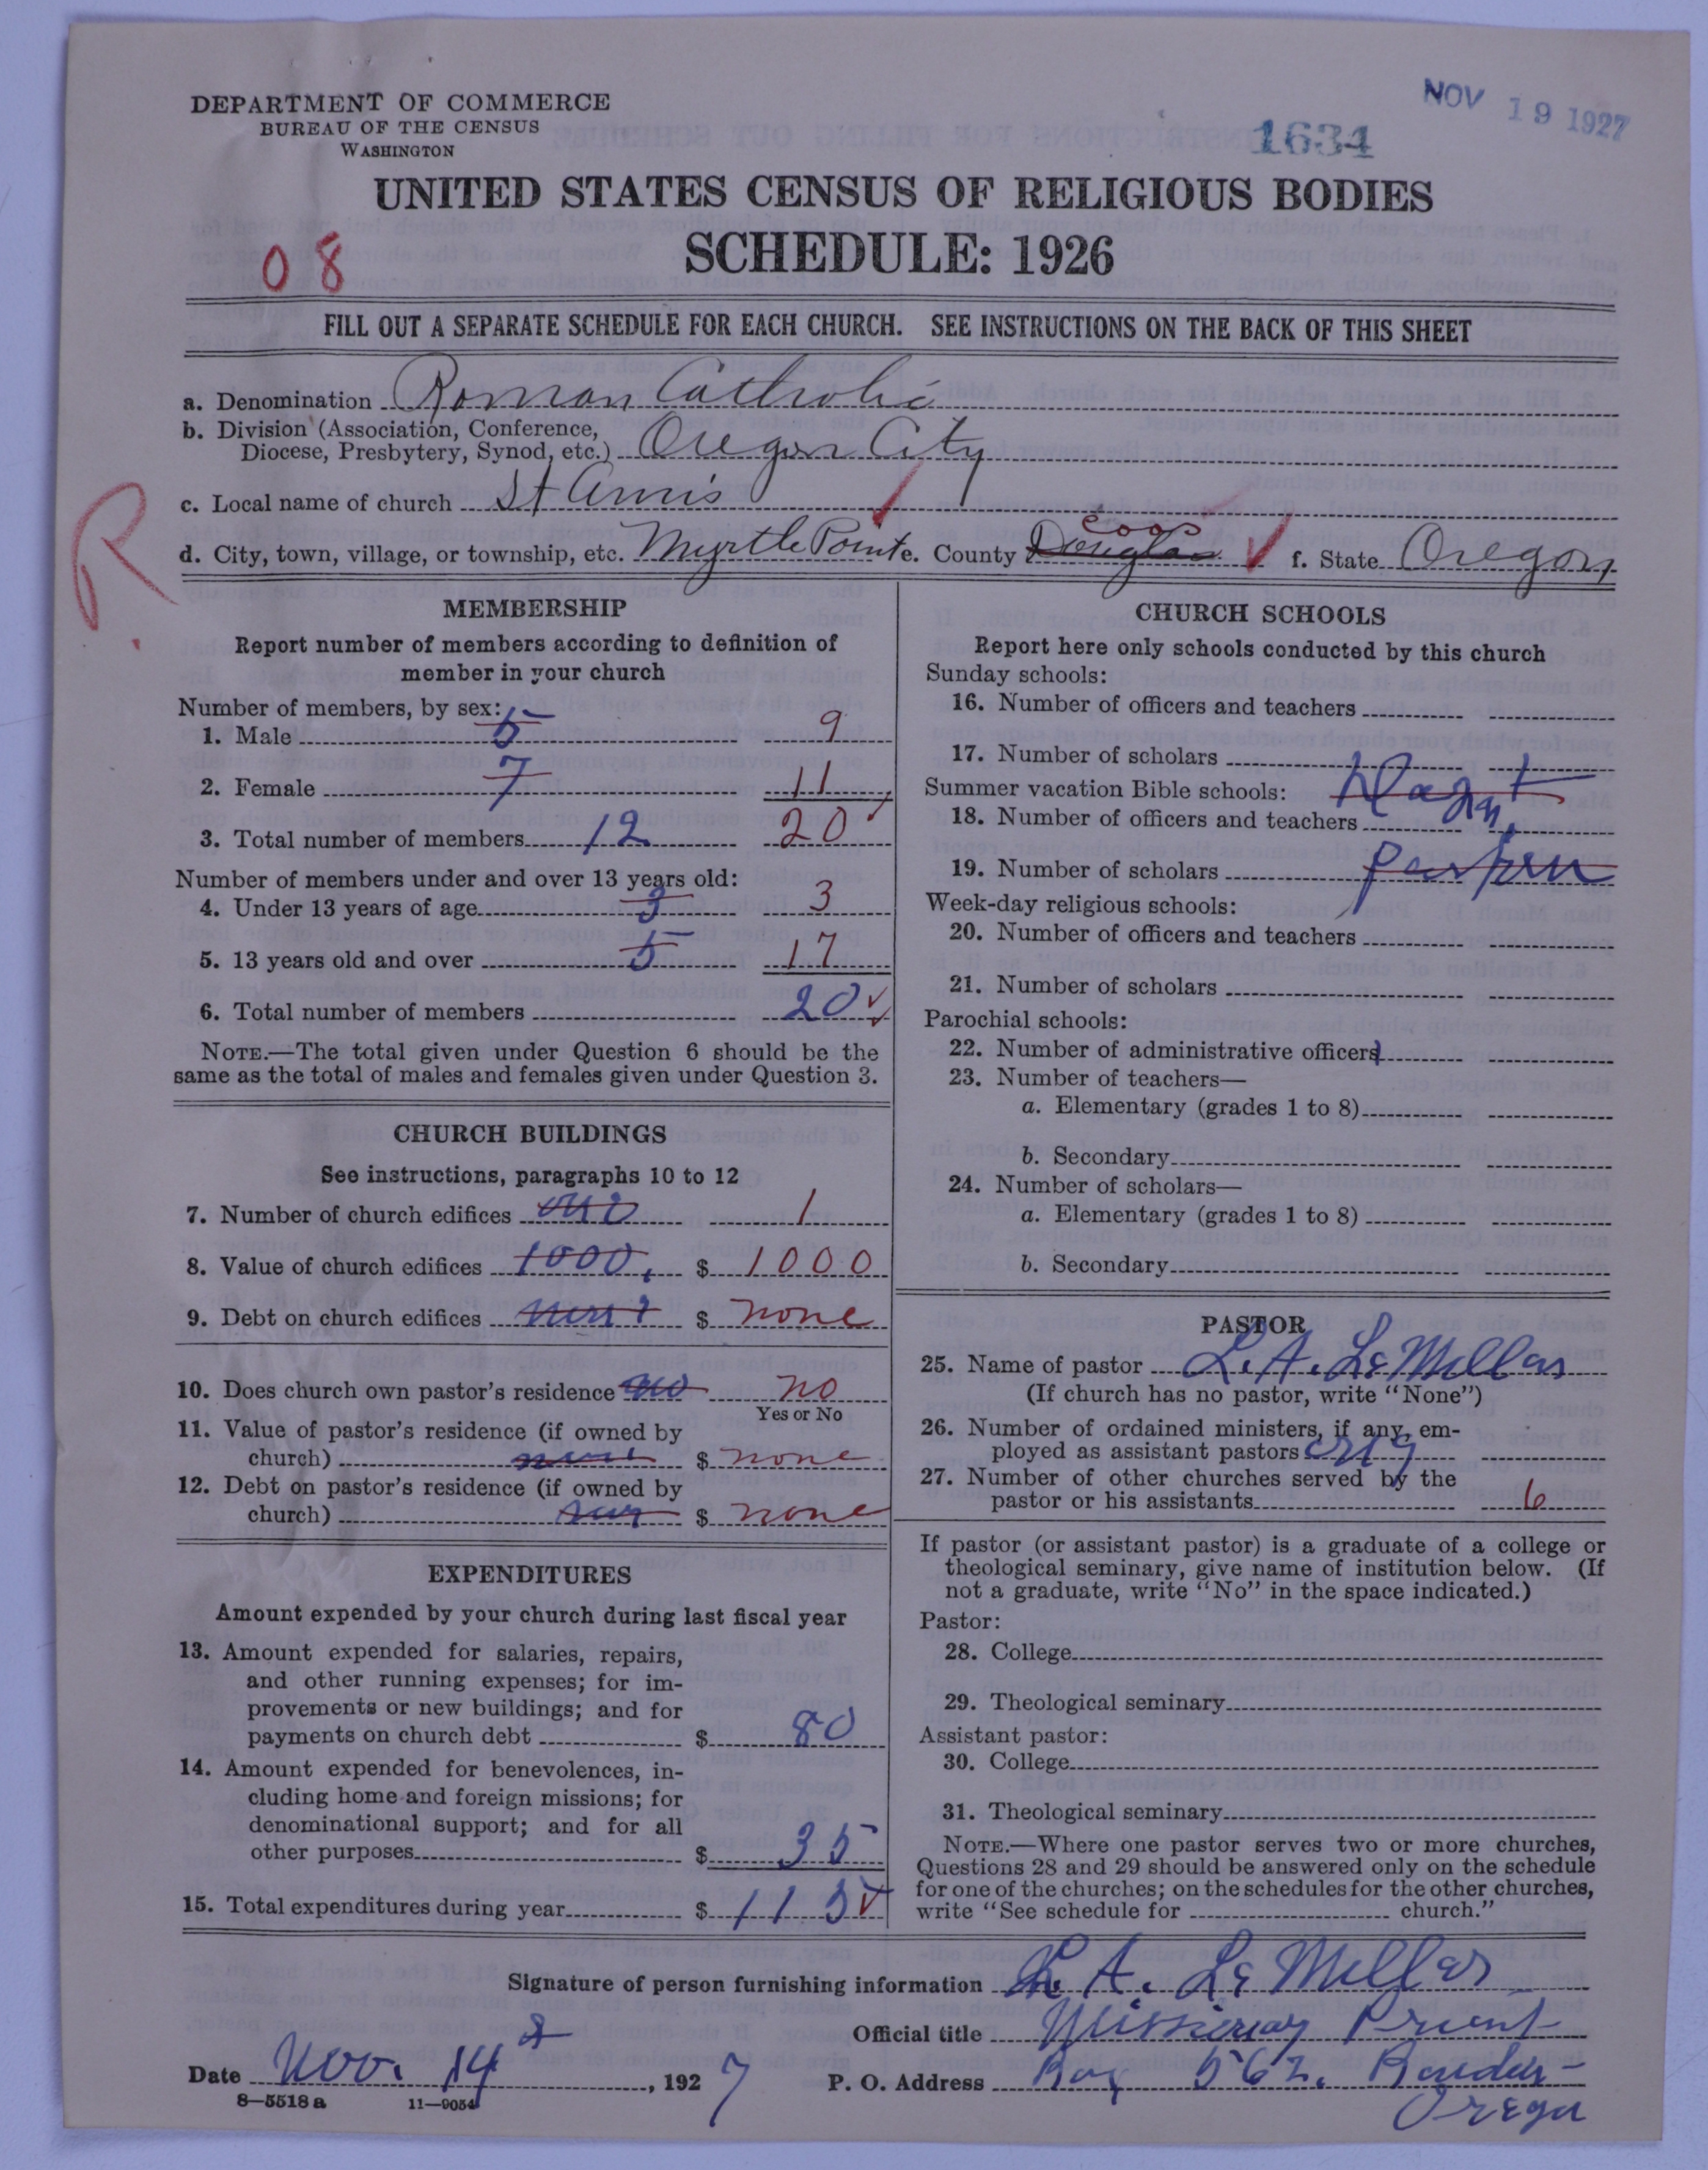 DEPARTMENT OF COMMERCE
BUREAU OF THE CENSUS
WASHINGTON
NOV 19 1927
1634
UNITED STATES CENSUS OF RELIGIOUS BODIES
SCHEDULE: 1926
08
FILL OUT A SEPARATE SCHEDULE FOR EACH CHURCH. SEE INSTRUCTIONS ON THE BACK OF THIS SHEET
a. Denomination Roman Catholic
b. Division (Association, Conference,
Diocese, Presbytery, Synod, etc.) Oregon City
c. Local name of church St Anns
R.
d. City, town, village, or township, etc. Myrtle Point e. County Douglas Coos f. State Oregon
MEMBERSHIP
Report number of members according to definition of
member in your church
Number of members, by sex:
1. Male 5 9
2. Female 7 11
3. Total number of members 12 20
Number of members under and over 13 years old:
4. Under 13 years of age 3 3
5. 13 years old and over 5 17
6. Total number of members 20
NOTE.—The total given under Question 6 should be the
same as the total of males and females given under Question 3.
CHURCH BUILDINGS
See instructions, paragraphs 10 to 12
7. Number of church edifices one 1
8. Value of church edifices 1000. $ 1000
9. Debt on church edifices $ none
10. Does church own pastor's residence no no
Yes or No
11. Value of pastor's residence (if owned by
church) none $ none
12. Debt on pastor's residence (if owned by
church) $ none
EXPENDITURES
Amount expended by your church during last fiscal year
13. Amount expended for salaries, repairs,
and other running expenses; for im-
provements or new buildings; and for
payments on church debt $ 80
14. Amount expended for benevolences, in-
cluding home and foreign missions; for
denominational support; and for all
other purposes $ 35
15. Total expenditures during year $ 115
CHURCH SCHOOLS
Report here only schools conducted by this church
Sunday schools:
16. Number of officers and teachers
17. Number of scholars
Summer vacation Bible schools:
18. Number of officers and teachers
19. Number of scholars
Week-day religious schools:
20. Number of officers and teachers
21. Number of scholars
Parochial schools:
22. Number of administrative officers
23. Number of teachers—
a. Elementary (grades 1 to 8)
b. Secondary
24. Number of scholars—
a. Elementary (grades 1 to 8)
b. Secondary
PASTOR
25. Name of pastor L. A. Le Millar
(If church has no pastor, write "None")
26. Number of ordained ministers, if any, em-
ployed as assistant pastors
27. Number of other churches served by the
pastor or his assistants 6
If pastor (or assistant pastor) is a graduate of a college or
theological seminary, give name of institution below. (If
not a graduate, write "No" in the space indicated.)
Pastor:
28. College
29. Theological seminary
Assistant pastor:
30. College
31. Theological seminary
NOTE.—Where one pastor serves two or more churches,
Questions 28 and 29 should be answered only on the schedule
for one of the churches; on the schedules for the other churches,
write "See schedule for church."
Signature of person furnishing information L. A. Le Millar
Official title Missionary Priest
Date Nov. 14, 1927 P. O. Address Box 562, Bandon-
Oregon
8—5518 a 11—9054